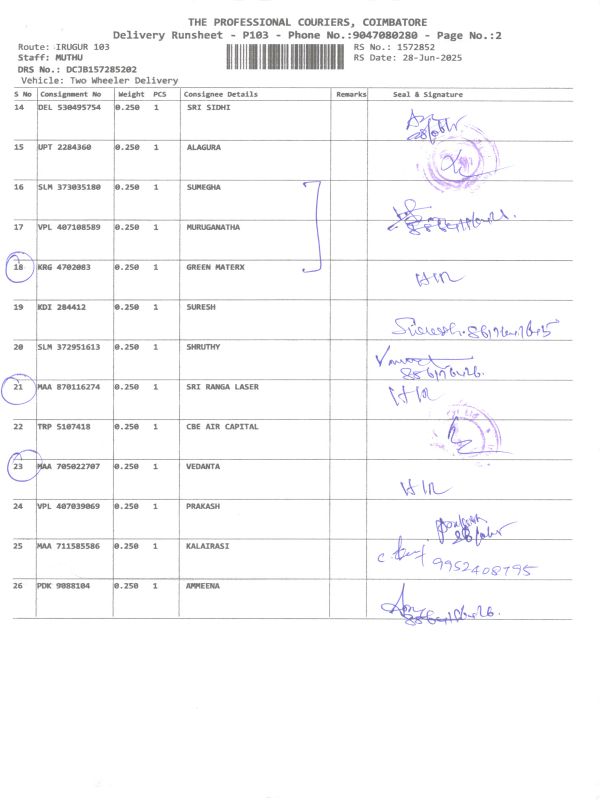 THE PROFESSIONAL COURIERS, COIMBATORE
Delivery Runsheet - P103 - Phone No.:9047080280 - Page No.:2
Route: IRUGUR 103 RS No.: 1572852
Staff: MUTHU RS Date: 28-Jun-2025
DRS No.: DCJB157285202
Vehicle: Two Wheeler Delivery
S No Consignment No Weight PCS Consignee Details Remarks Seal & Signature
14 DEL 530495754 0.250 1 SRI SIDHI
15 UPT 2284360 0.250 1 ALAGURA
16 SLM 373035180 0.250 1 SUMEGHA
17 VPL 407108589 0.250 1 MURUGANATHA
18 KRG 4702083 0.250 1 GREEN MATERX
19 KDI 284412 0.250 1 SURESH Suresh
20 SLM 372951613 0.250 1 SHRUTHY
21 MAA 870116274 0.250 1 SRI RANGA LASER
22 TRP 5107418 0.250 1 CBE AIR CAPITAL
23 MAA 705022707 0.250 1 VEDANTA
24 VPL 407039069 0.250 1 PRAKASH
25 MAA 711585586 0.250 1 KALAIRASI 9952408795
26 PDK 9088104 0.250 1 AMMEENA